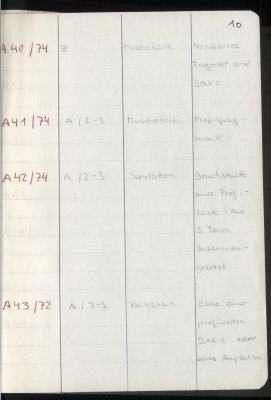 10
A40/74 Muschelkalk Fragment einer
Basis
A41/74 A/2-3 Muschelkalk Profilfrag-
ment
A42/74 A/2-3 Sandstein Bruchstücke
einer Profil-
leiste (Aus
3 Teilen
zusammen-
gesetzt
A43/72 A/2-3 Kalkstein Ecke einer
profilierten
Basis oder
eines